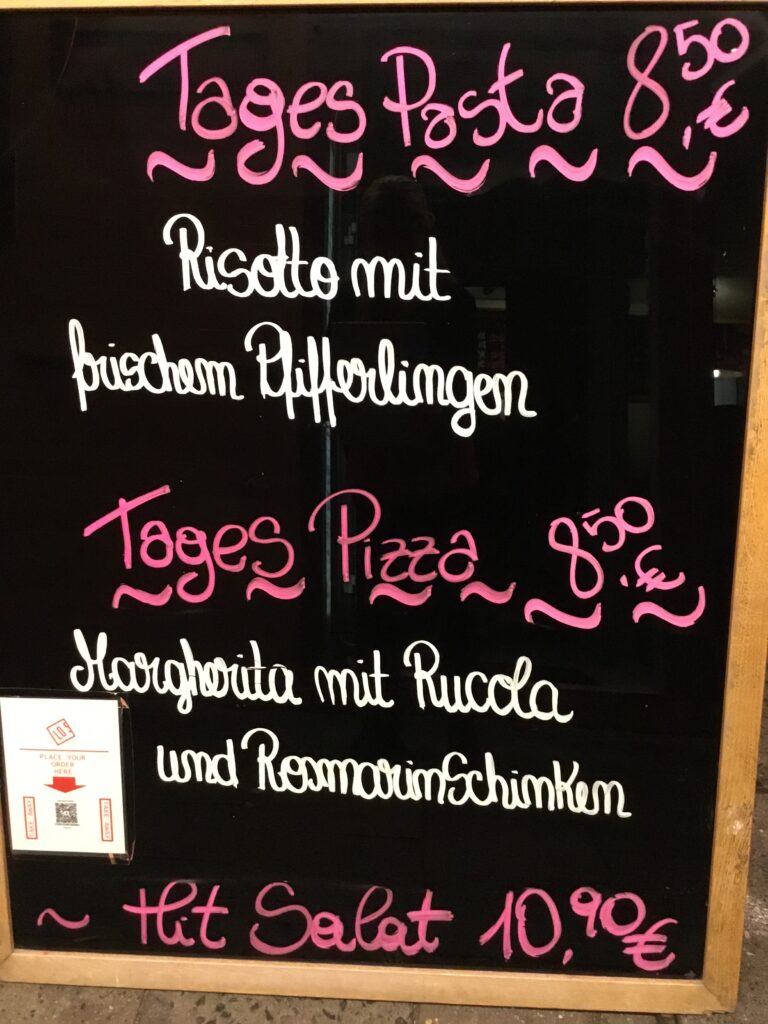 Tages Pasta 8,50 €
Risotto mit
frischem Pfifferlingen
Tages Pizza 8,50 €
Margherita mit Rucola
und Rosmarinschinken
LOS
PLACE YOUR
ORDER
HERE
TAKE AWAY
TAKE AWAY
~ Hit Salat 10,90 €